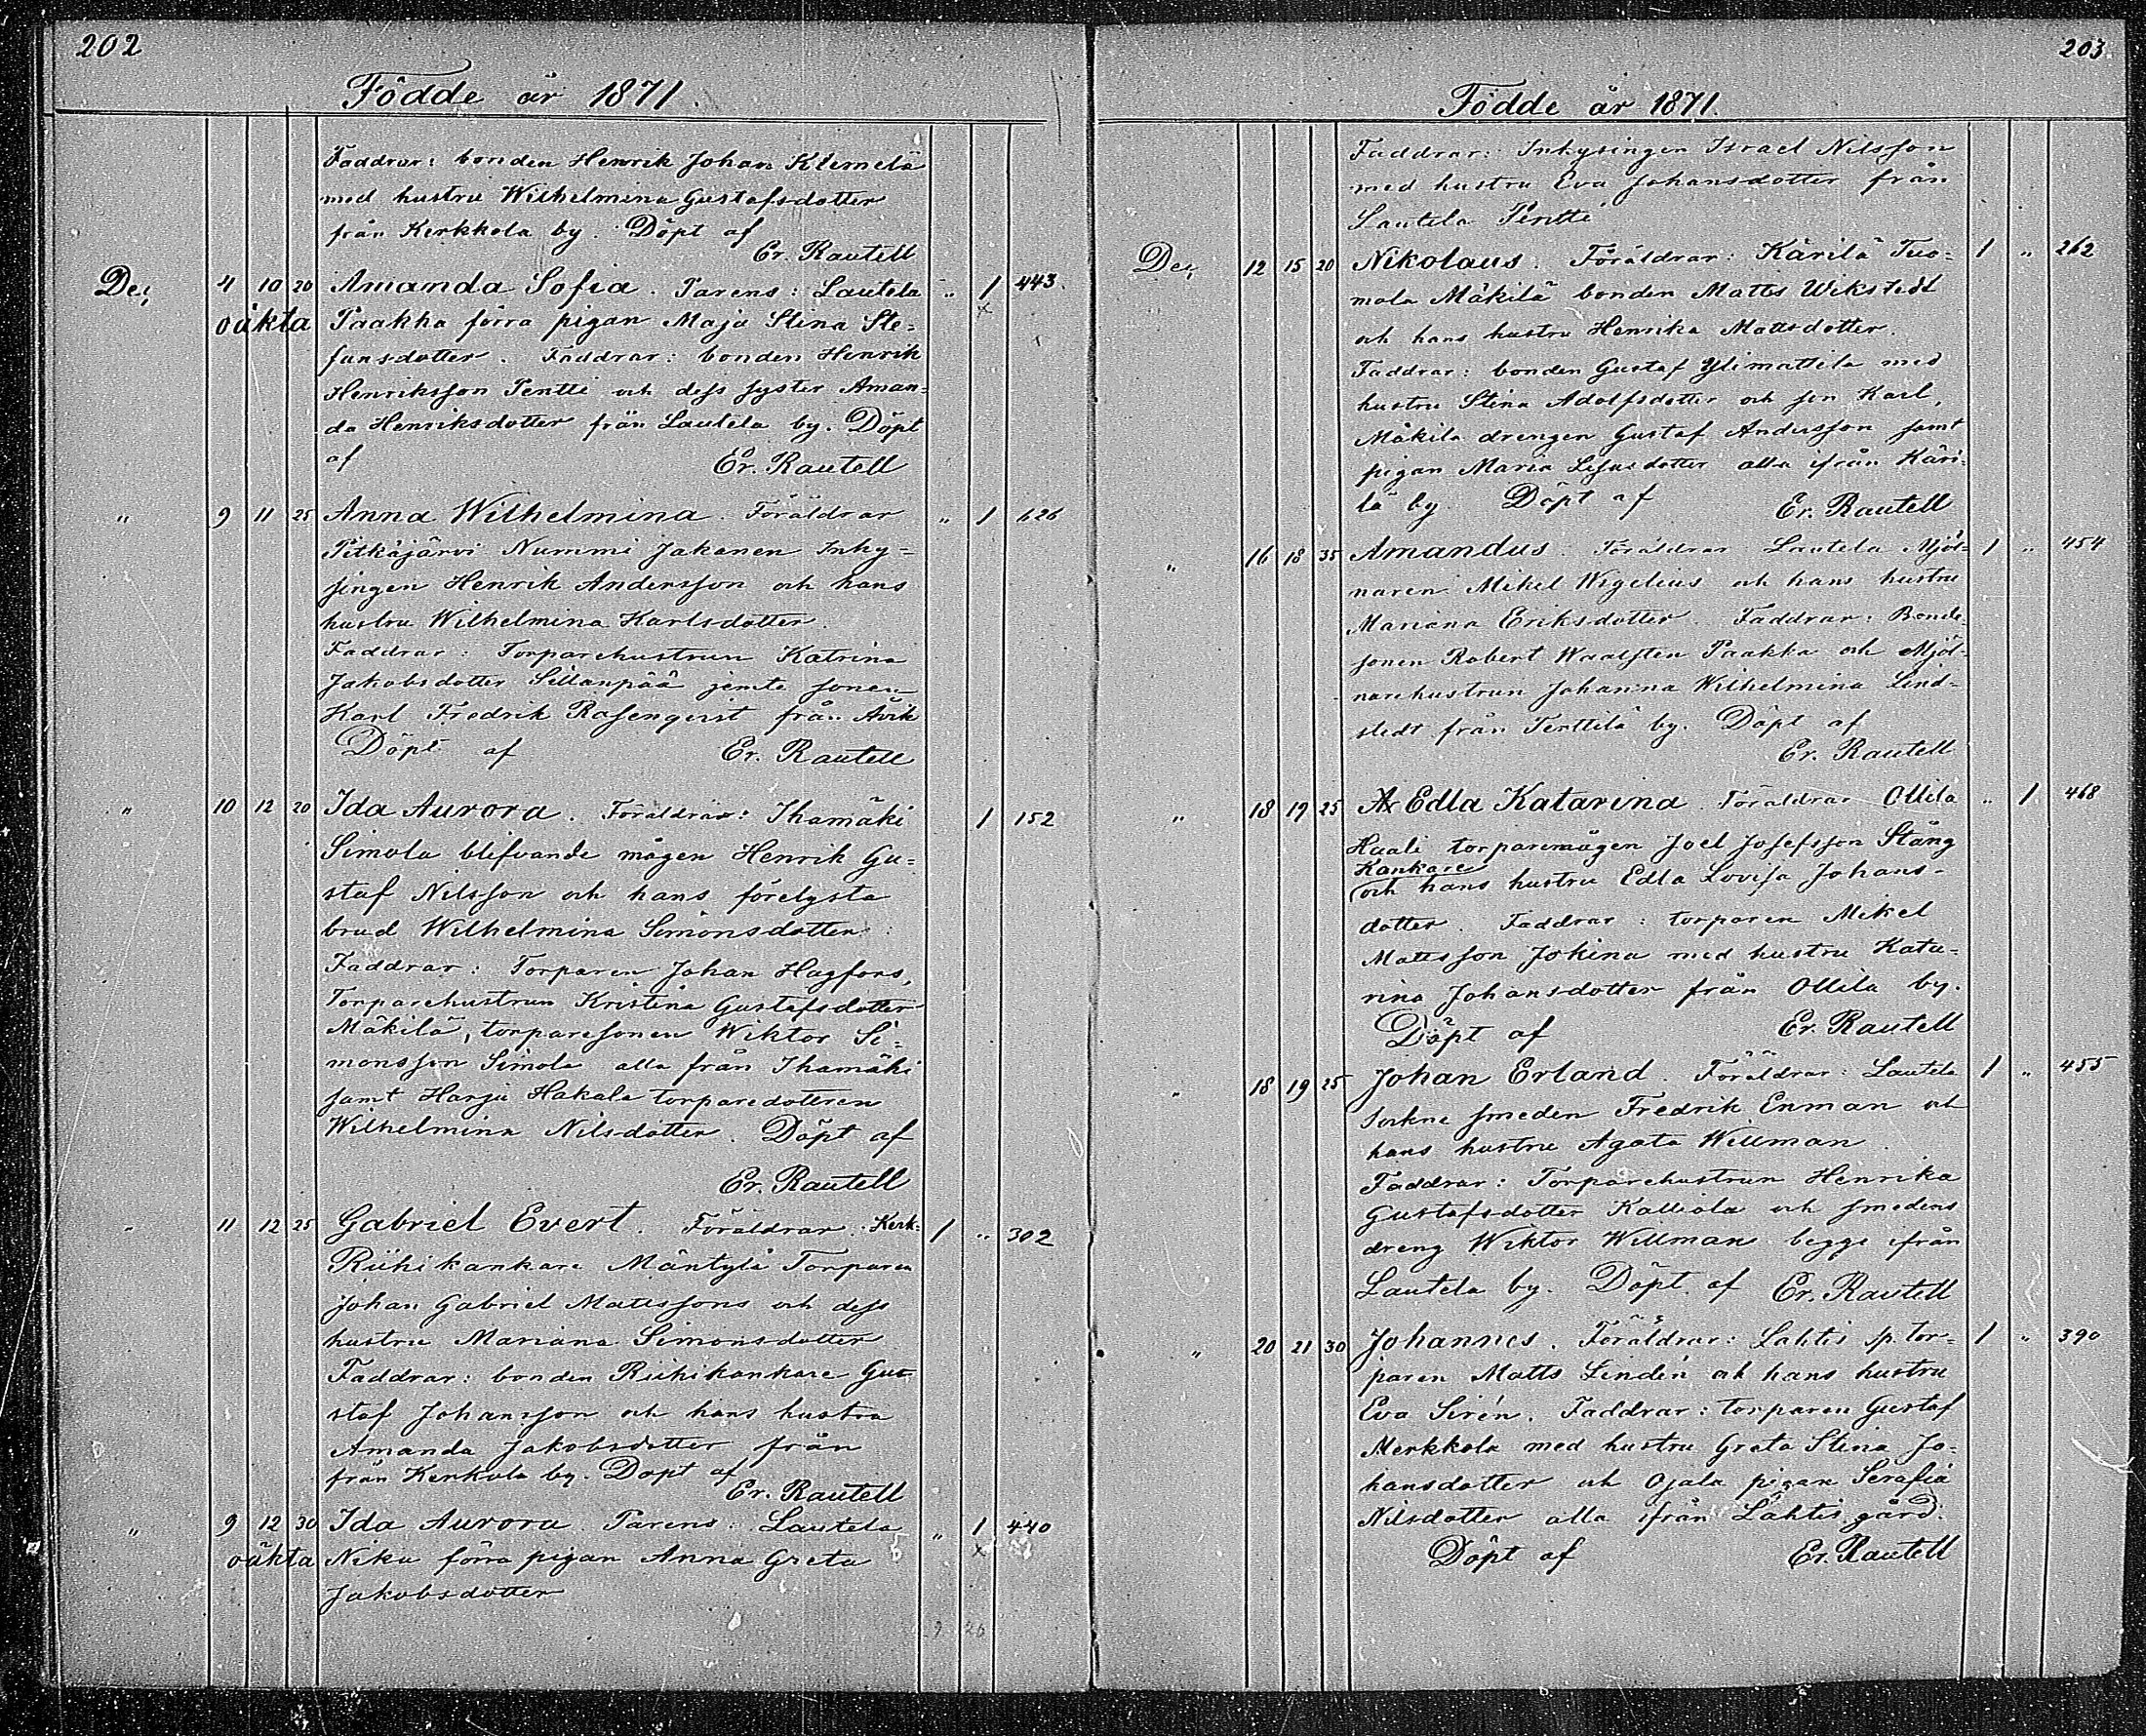 202
Födde år 1871.
Faddrar: bonden Henrik Johan Klemelä
med hustru Wilhelmina Gustafsdotter
från Kerkkola by. Döpt af
Er. Rautell
Dec. 4 10 20 Amanda Sofia. Parens: Lautela „ 1 443.
oäkta Paakka förra pigan Maja Stina Ste- x
fansdotter. Faddrar: bonden Henrik
Henriksson Pentti och dess syster Aman-
da Henriksdotter från Lautela by. Döpt
af Er. Rautell
„ 9 11 25 Anna Wilhelmina. Föräldrar „ 1 626
Pitkäjärvi Nummi Jakonen Inhy-
singen Henrik Andersson och hans
hustru Wilhelmina Karlsdotter.
Faddrar: Torparehustrun Katrina
Jakobsdotter Sillanpää jemte sonen
Karl Fredrik Rosenqvist från Åvik
Döpt af Er. Rautell
„ 10 12 20 Ida Aurora. Föräldrar: Ihamäki 1 152
Simola blifvande mågen Henrik Gu-
staf Nilsson och hans förelysta
brud Wilhelmina Simonsdotter:
Faddrar: Torparen Johan Hagfors,
Torparehustrun Kristina Gustafsdotter
Mäkilä, torparesonen Wiktor Si-
monsson Simola alla från Ihamäki
samt Harju Hakala torparedottren
Wilhelmina Nilsdotter. Döpt af
Er. Rautell
„ 11 12 25 Gabriel Evert. Föräldrar: Kerk- 1 „ 302
Riihikankare Mäntylä Torparen
Johan Gabriel Mattssons och dess
hustru Mariana Simonsdotter
Faddrar: bonden Riihikankare Gu-
staf Johansson och hans hustru
Amanda Jakobsdotter från
från Kerkola by. Döpt af
Er. Rautell
„ 9 12 30 Ida Aurora. Parens: Lautela „ 1 440
oäkta Niku förra pigan Anna Greta x
Jakobsdotter
203.
Födde år 1871.
Faddrar: Inhysingen Israel Nilsson
med hustru Eva Johansdotter från
Lautela Pentti
Dec. 12 15 20 Nikolaus. Föräldrar: Kärilä Tuo- 1 „ 262
mola Mäkilä bonden Matts Wikstedt
och hans hustru Henrika Mattsdotter.
Faddrar: bonden Gustaf Ylimattila med
hustru Stina Adolfsdotter och son Karl,
Mäkilä drengen Gustaf Andersson samt
pigan Maria dotter alla ifrån Käri-
lä by. Döpt af Er. Rautell
„ 16 18 35 Amandus. Föräldrar Lautela Mjöl- 1 „ 454
naren Mikel Wigelius och hans hustru
Mariana Eriksdotter. Faddrar: Bonde-
sonen Robert Waalsten Paakka och Mjöl-
narehustrun Johanna Wilhelmina Lind-
stedt från Terttilä by. Döpt af
Er. Rautell
„ 18 19 25 Edla Katarina. Föräldrar Ollila „ 1 468
Haali torparemågen Joel Josefsson Stång
Kankare
och hans hustru Edla Lovisa Johans-
dotter. Faddrar: torparen Mikel
Mattsson Jokina med hustru Kata-
rina Johansdotter från Ollila by.
Döpt af Er. Rautell
„ 18 19 25 Johan Erland. Föräldrar: Lautela 1 „ 455
sockne smeden Fredrik Enman och
hans hustru Agata Willman.
Faddrar: Torparehustrun Henrika
Gustafsdotter Kalliola och smedens
dreng Wiktor Willman begge ifrån
Lautela by. Döpt af Er. Rautell
„ 20 21 30 Johannes. Föräldrar: Lahtis sp. tor- 1 „ 390
paren Matts Lindén och hans hustru
Eva Sirén. Faddrar: torparen Gustaf
Merkkola med hustru Greta Stina Jo-
hansdotter och Ojala pigan Serafia
Nilsdotter alla ifrån Lahtis gård.
Döpt af Er. Rautell